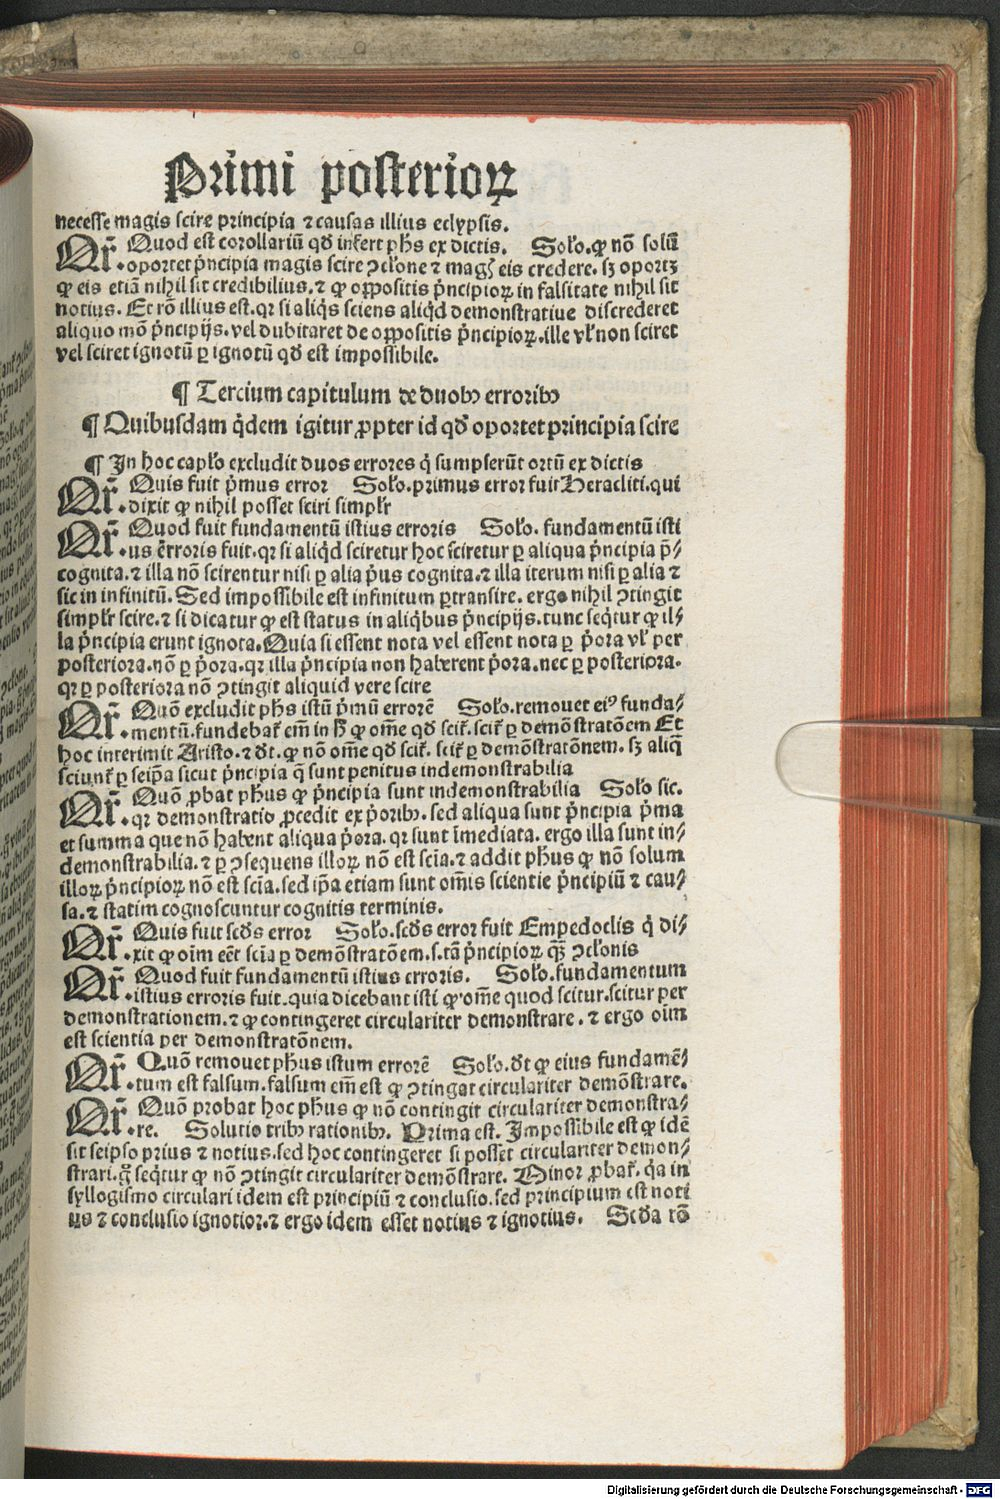 Primi posterioꝝ
necesse magis scire principia ⁊ causas illius eclypsis.
Qr̄. Quod est corollariū qd̕ infert pħs ex dictis. Solo. ꝙ nō solū
oportet pͥncipia magis scire ꝯclone ⁊ magꝭ eis credere. sꝫ oportꝫ
ꝙ eis etiā nihil sit credibilius. ⁊ ꝙ oppositis pͥncipioꝝ in falsitate nihil sit
notius. Et rō illius est. qꝛ si aliqͥs sciens aliqͥd demonstratiue discrederet
aliquo mō pͥncipijs. vel dubitaret de oppositis pͥncipioꝝ. ille vl̕ non sciret
vel sciret ignotū ꝑ ignotū qd̕ est impossibile.
¶ Tercium capitulum de duobꝰ erroribꝰ
¶ Quibusdam qͥdem igitur ꝓpter id qd̕ oportet principia scire
¶ In hoc caplo excludit duos errores qͥ sumpserūt ortū ex dictis
Qr̄. Quis fuit pͥmus error Solo. primus error fuit Heracliti. qui
dixit ꝙ nihil posset sciri simplr̄
Qr̄. Quod fuit fundamentū istius erroris Solo. fundamentū isti
us erroris fuit. qꝛ si aliqͥd sciretur hoc sciretur ꝑ aliqua pͥncipia p̄-
cognita. ⁊ illa nō scirentur nisi ꝑ alia pͥus cognita. ⁊ illa iterum nisi ꝑ alia ⁊
sic in infinitū. Sed impossibile est infinitum ꝑtransire. ergo nihil ꝯtingit
simplr̄ scire. ⁊ si dicatur ꝙ est status in aliqͥbus pͥncipijs. tunc seqͥtur ꝙ il-
la pͥncipia erunt ignota. Quia si essent nota vel essent nota ꝑ pͥora vl̕ per
posteriora. nō ꝑ pͥora. qꝛ illa pͥncipia non haberent pͥora. nec ꝑ posteriora.
qꝛ ꝑ posteriora nō ꝯtingit aliquid vere scire
Qr̄. Quō excludit pħs istū pͥmū errorē Solo. remouet eiꝰ funda-
mentū. fundebat̄ em̄ in h̕ ꝙ om̄e qd̕ scit̄. scit̄ ꝑ demōstratōem Et
hoc interimit Aristo. ⁊ dt̕. ꝙ nō om̄e qd̕ scit̄. scit̄ ꝑ demōstratōnem. sꝫ aliq̄
sciunt̄ ꝑ seip̄a sicut pͥncipia q̄ sunt penitus indemonstrabilia
Qr̄. Quō ꝓbat pħus ꝙ pͥncipia sunt indemonstrabilia Solo sic.
qꝛ demonstratio ꝓcedit ex pͥoribꝰ. sed aliqua sunt pͥncipia pͥma
et summa que nō habent aliqua pͥora. qꝛ sunt īmediata. ergo illa sunt in-
demonstrabilia. ⁊ ꝑ ꝯsequens illoꝝ nō est scīa. ⁊ addit pħus ꝙ nō solum
illoꝝ pͥncipioꝝ nō est scīa. sed ip̄a etiam sunt om̄is scientie pͥncipiū ⁊ cau-
sa. ⁊ statim cognoscuntur cognitis terminis.
Qr̄. Quis fuit scd̕s error Solo. scd̕s error fuit Empedoclis qͥ di-
xit ꝙ oīm eēt scīa ꝑ demōstratōem. s. tā pͥncipioꝝ qꝫ̄ ꝯclonis
Qr̄. Quod fuit fundamentū istius erroris. Solo. fundamentum
istius erroris fuit. quia dicebant isti ꝙ om̄e quod scitur. scitur per
demonstrationem. ⁊ ꝙ contingeret circulariter demonstrare. ⁊ ergo oīm
est scientia per demonstratōnem.
Qr̄. Quō remouet pħus istum errorē Solo. dt̕ ꝙ eius fundamē-
tum est falsum. falsum em̄ est ꝙ ꝯtingat circulariter demōstrare.
Qr̄. Quō probat hoc pħus ꝙ nō contingit circulariter demonstra-
re. Solutio tribꝰ rationibꝰ. Prima est. Impossibile est ꝙ idē
sit seipso prius ⁊ notius. sed hoc contingeret si posset circulariter demon-
strari. gͦ seqͥtur ꝙ nō ꝯtingit circulariter demōstrare. Minor ꝓbat̄. qͥa in
syllogismo circulari idem est principiū ⁊ conclusio. sed principium est noti
us ⁊ conclusio ignotior. ⁊ ergo idem esset notius ⁊ ignotius. Scd̕a rō
Digitalisierung gefördert durch die Deutsche Forschungsgemeinschaft - DFG